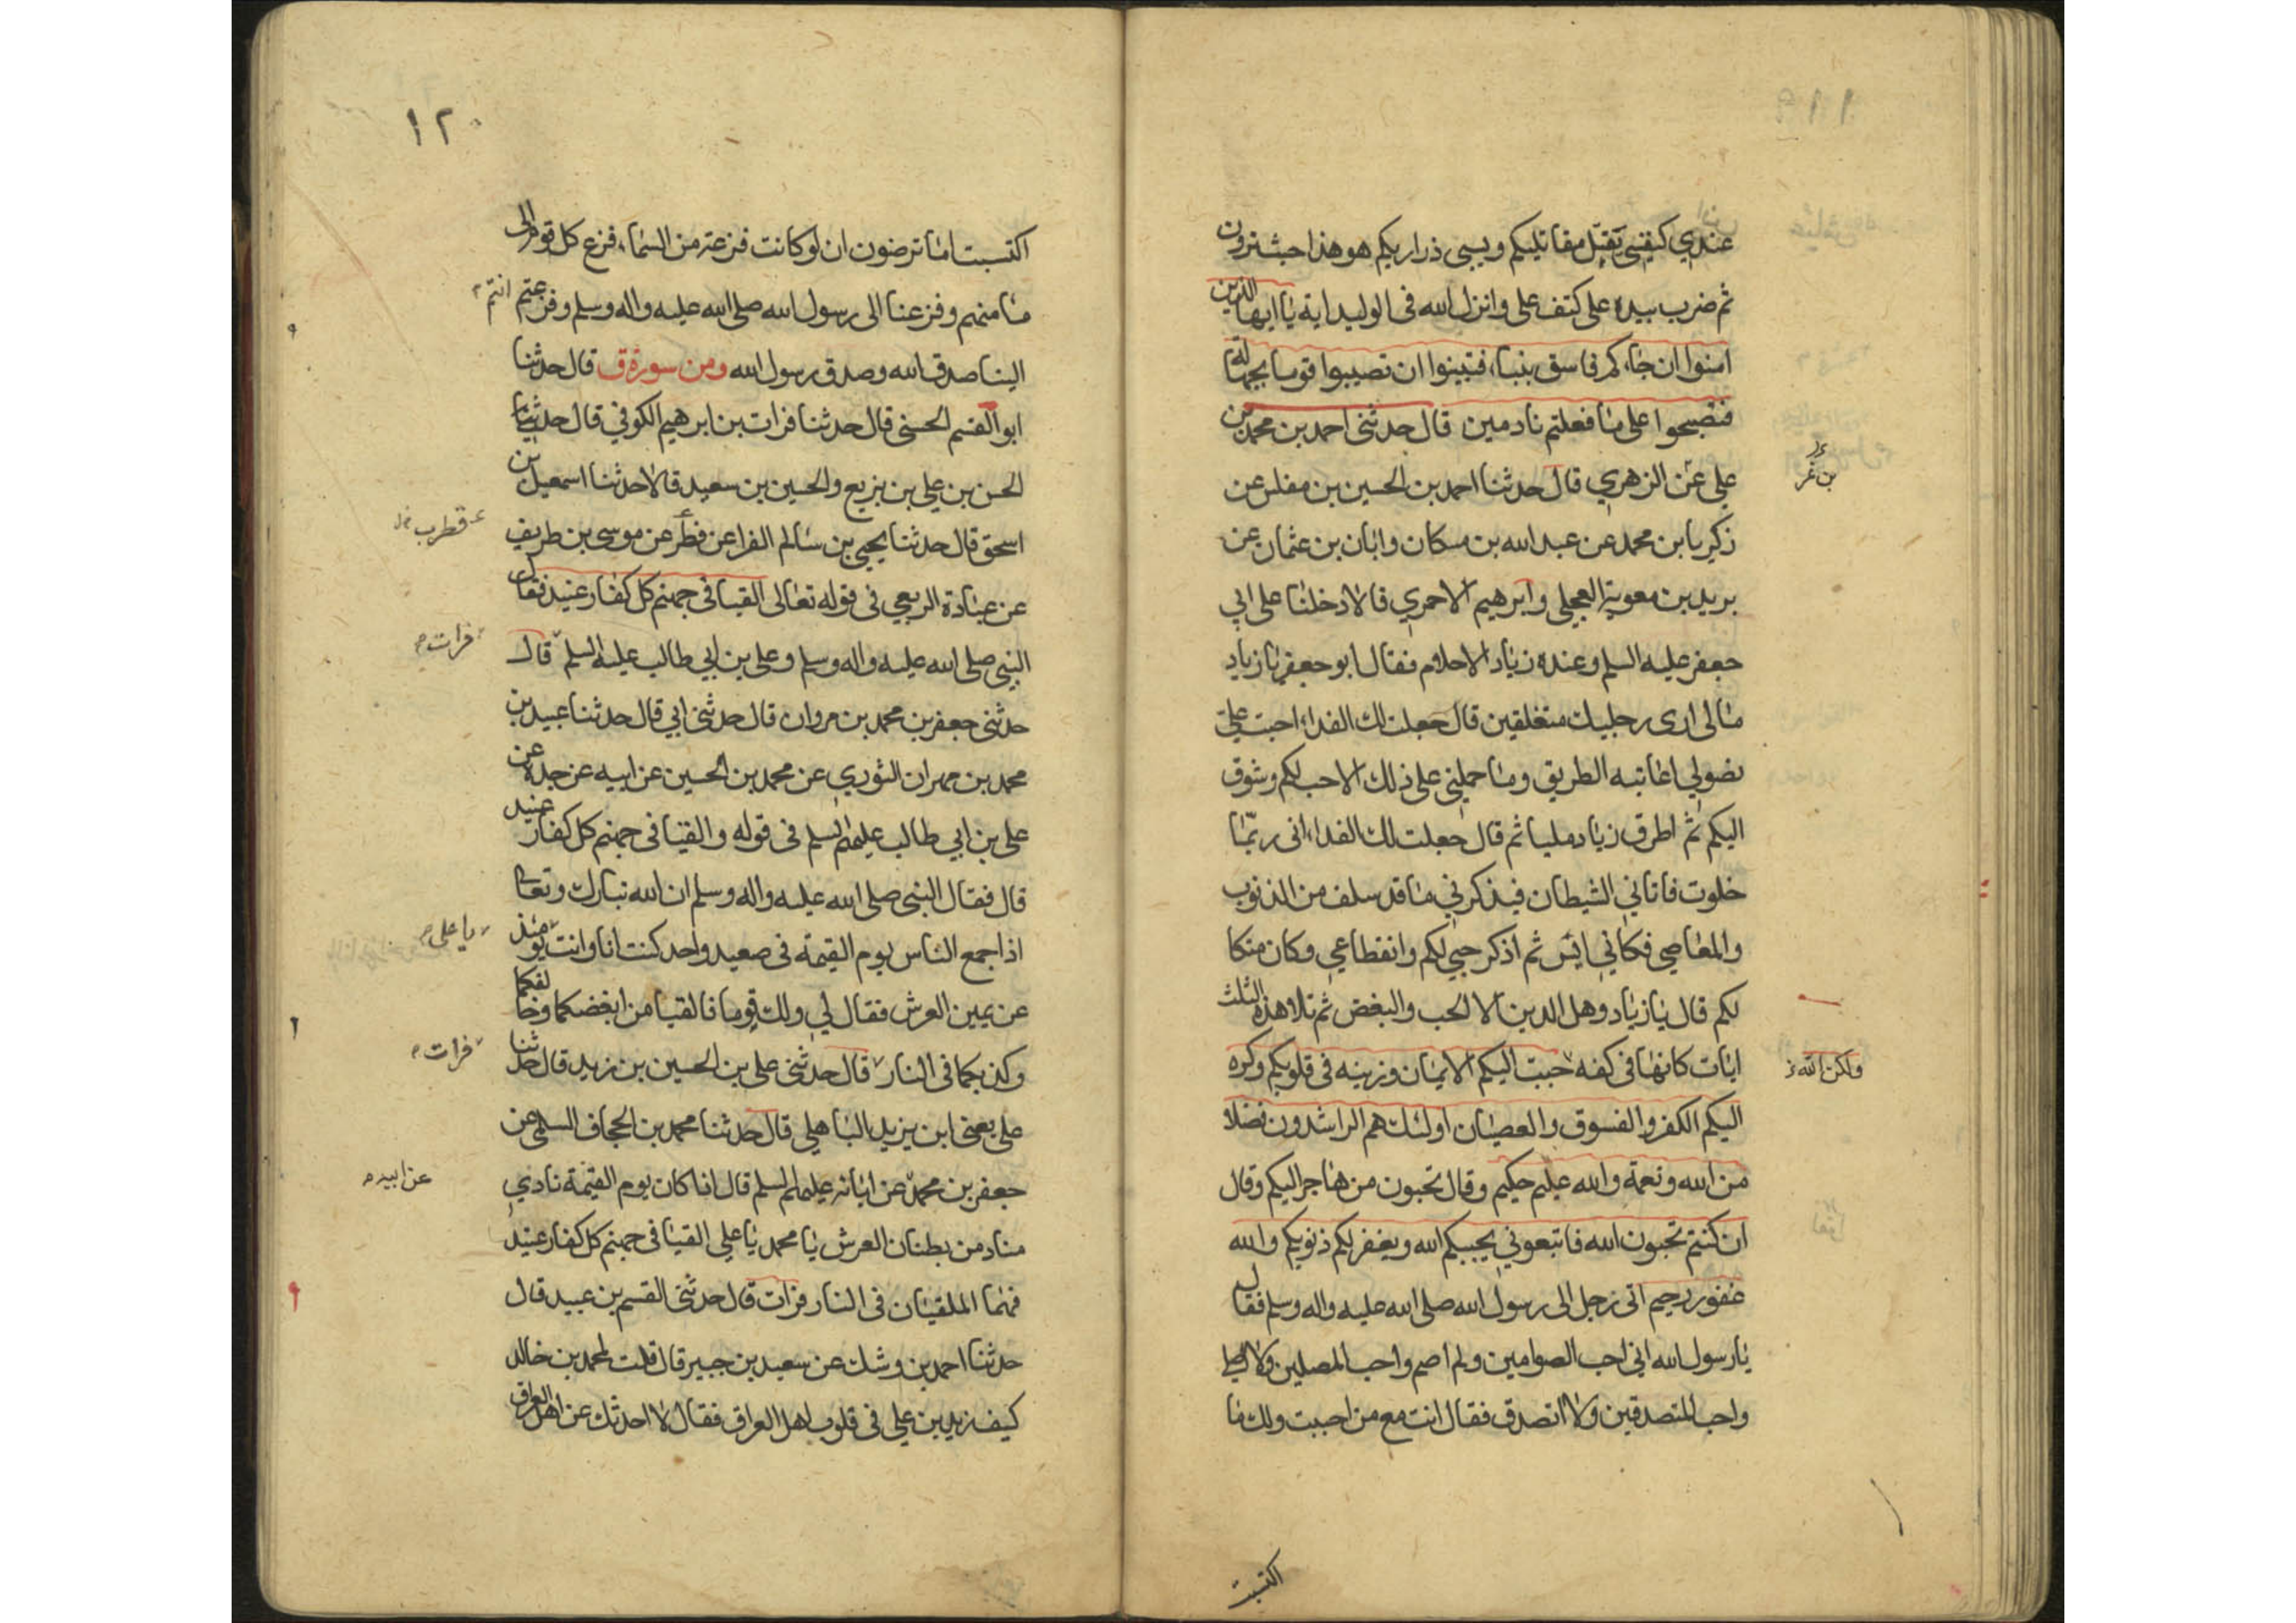 عندي كنفسي يقتل مقاتليكم ويسبى ذراريكم هو هذا حيث ترون
ثم ضرب بيده على كتف على وانزل الله فى الوليد اية يا ايها الذين
امنوا ان جاءكم فاسق بنباء فتبينوا ان تصيبوا قوما بجهالة
فتصبحوا على ما فعلتم نادمين قال حدثنى احمد بن محمد بن
على عن الزهري قال حدثنا احمد بن الحسين بن مفلس عن
بن عمر
زكريا بن محمد عن عبد الله بن مسكان وابان بن عثمان عن
بريد بن معوية العجلى وابرهيم الاحمري قالا دخلنا على ابي
جعفر عليه السلم وعنده زياد الاحلام فقال ابو جعفر يا زياد
مالى ارى رجليك متعلقين قال جعلت لك الفداء جئت على
نضولي اعاتبه الطريق وما حملنى على ذلك الا حب لكم وشوق
اليكم ثم اطرق زياد مليا ثم قال جعلت لك الفداء انى ربما
خلوت فاتاني الشيطان فيذكرني ما قد سلف من الذنوب
والمعاصي فكاني ايس ثم اذكر حبي لكم وانقطاعي وكان متكا
لكم قال يا زياد وهل الدين الا الحب والبغض ثم تلا هذه الثلث
ايات كانها فى كفه حبب اليكم الايمان وزينه فى قلوبكم وكره
ولكن الله
اليكم الكفر والفسوق والعصيان اولئك هم الراشدون فضلا
من الله ونعمة والله عليم حكيم وقال تحبون من هاجر اليكم وقال
ان كنتم تحبون الله فاتبعوني يحببكم الله ويغفر لكم ذنوبكم والله
غفور رحيم اتى رجل الى رسول الله صلى الله عليه واله وسلم فقال
يا رسول الله اني احب الصوامين ولم اصم واحب المصلين ولا اصلى
واحب المتصدقين ولا اتصدق فقال انت مع من احببت ولك ما
اكتسبت
١٢٠
اكتسبت اما ترضون ان لو كانت فزعة من السماء فزع كل قوم الى
مامنهم وفزعنا الى رسول الله صلى الله عليه واله وسلم وفزعتم انتم
الينا صدق الله وصدق رسول الله ومن سورة ق قال حدثنا
ابو القسم الحسنى قال حدثنا فرات بن ابرهيم الكوفي قال حدثنا
الحسن بن علي بن بزيع والحسين بن سعيد قالا حدثنا اسمعيل بن
اسحق قال حدثنا يحيى بن سالم الفرا عن فطر عن موسى بن طريف
قطرب
عن عباده الربعي فى قوله تعالى القيا فى جهنم كل كفار عنيد فقال
النبي صلى الله عليه واله وسلم وعلى بن ابي طالب عليه السلم قال
فرات
حدثنى جعفر بن محمد بن مروان قال حدثنى ابي قال حدثنا عبيد بن
محمد بن مهران الثوري عن محمد بن الحسين عن ابيه عن جده عن
على بن ابي طالب عليهم السلم فى قوله والقيا فى جهنم كل كفار عنيد
قال فقال النبى صلى الله عليه واله وسلم ان الله تبارك وتعالى
اذا جمع الناس يوم القيمة فى صعيد واحد كنت انا وانت يومئذ
يا على
عن يمين العرش فقال لي ولك قوما فالقيا من ابغضكما وخالفكما
وكذبكما فى النار قال حدثنى على بن الحسين بن زيد قال حدثنا
فرات
على يعنى ابن يزيد الباهلي قال حدثنا محمد بن الحجاف السلمى عن
جعفر بن محمد عن ابائه عليهم السلم قال اذا كان يوم القيمة نادي
عن ابيه
مناد من بطنان العرش يا محمد يا علي القيا فى جهنم كل كفار عنيد
فهما الملقيان فى النار فرات قال حدثنى القسم بن عبيد قال
حدثنا احمد بن وشك عن سعيد بن جبير قال قلت لمحمد بن خالد
كيف زيد بن علي فى قلوب اهل العراق فقال لا احدثك عن اهل العراق